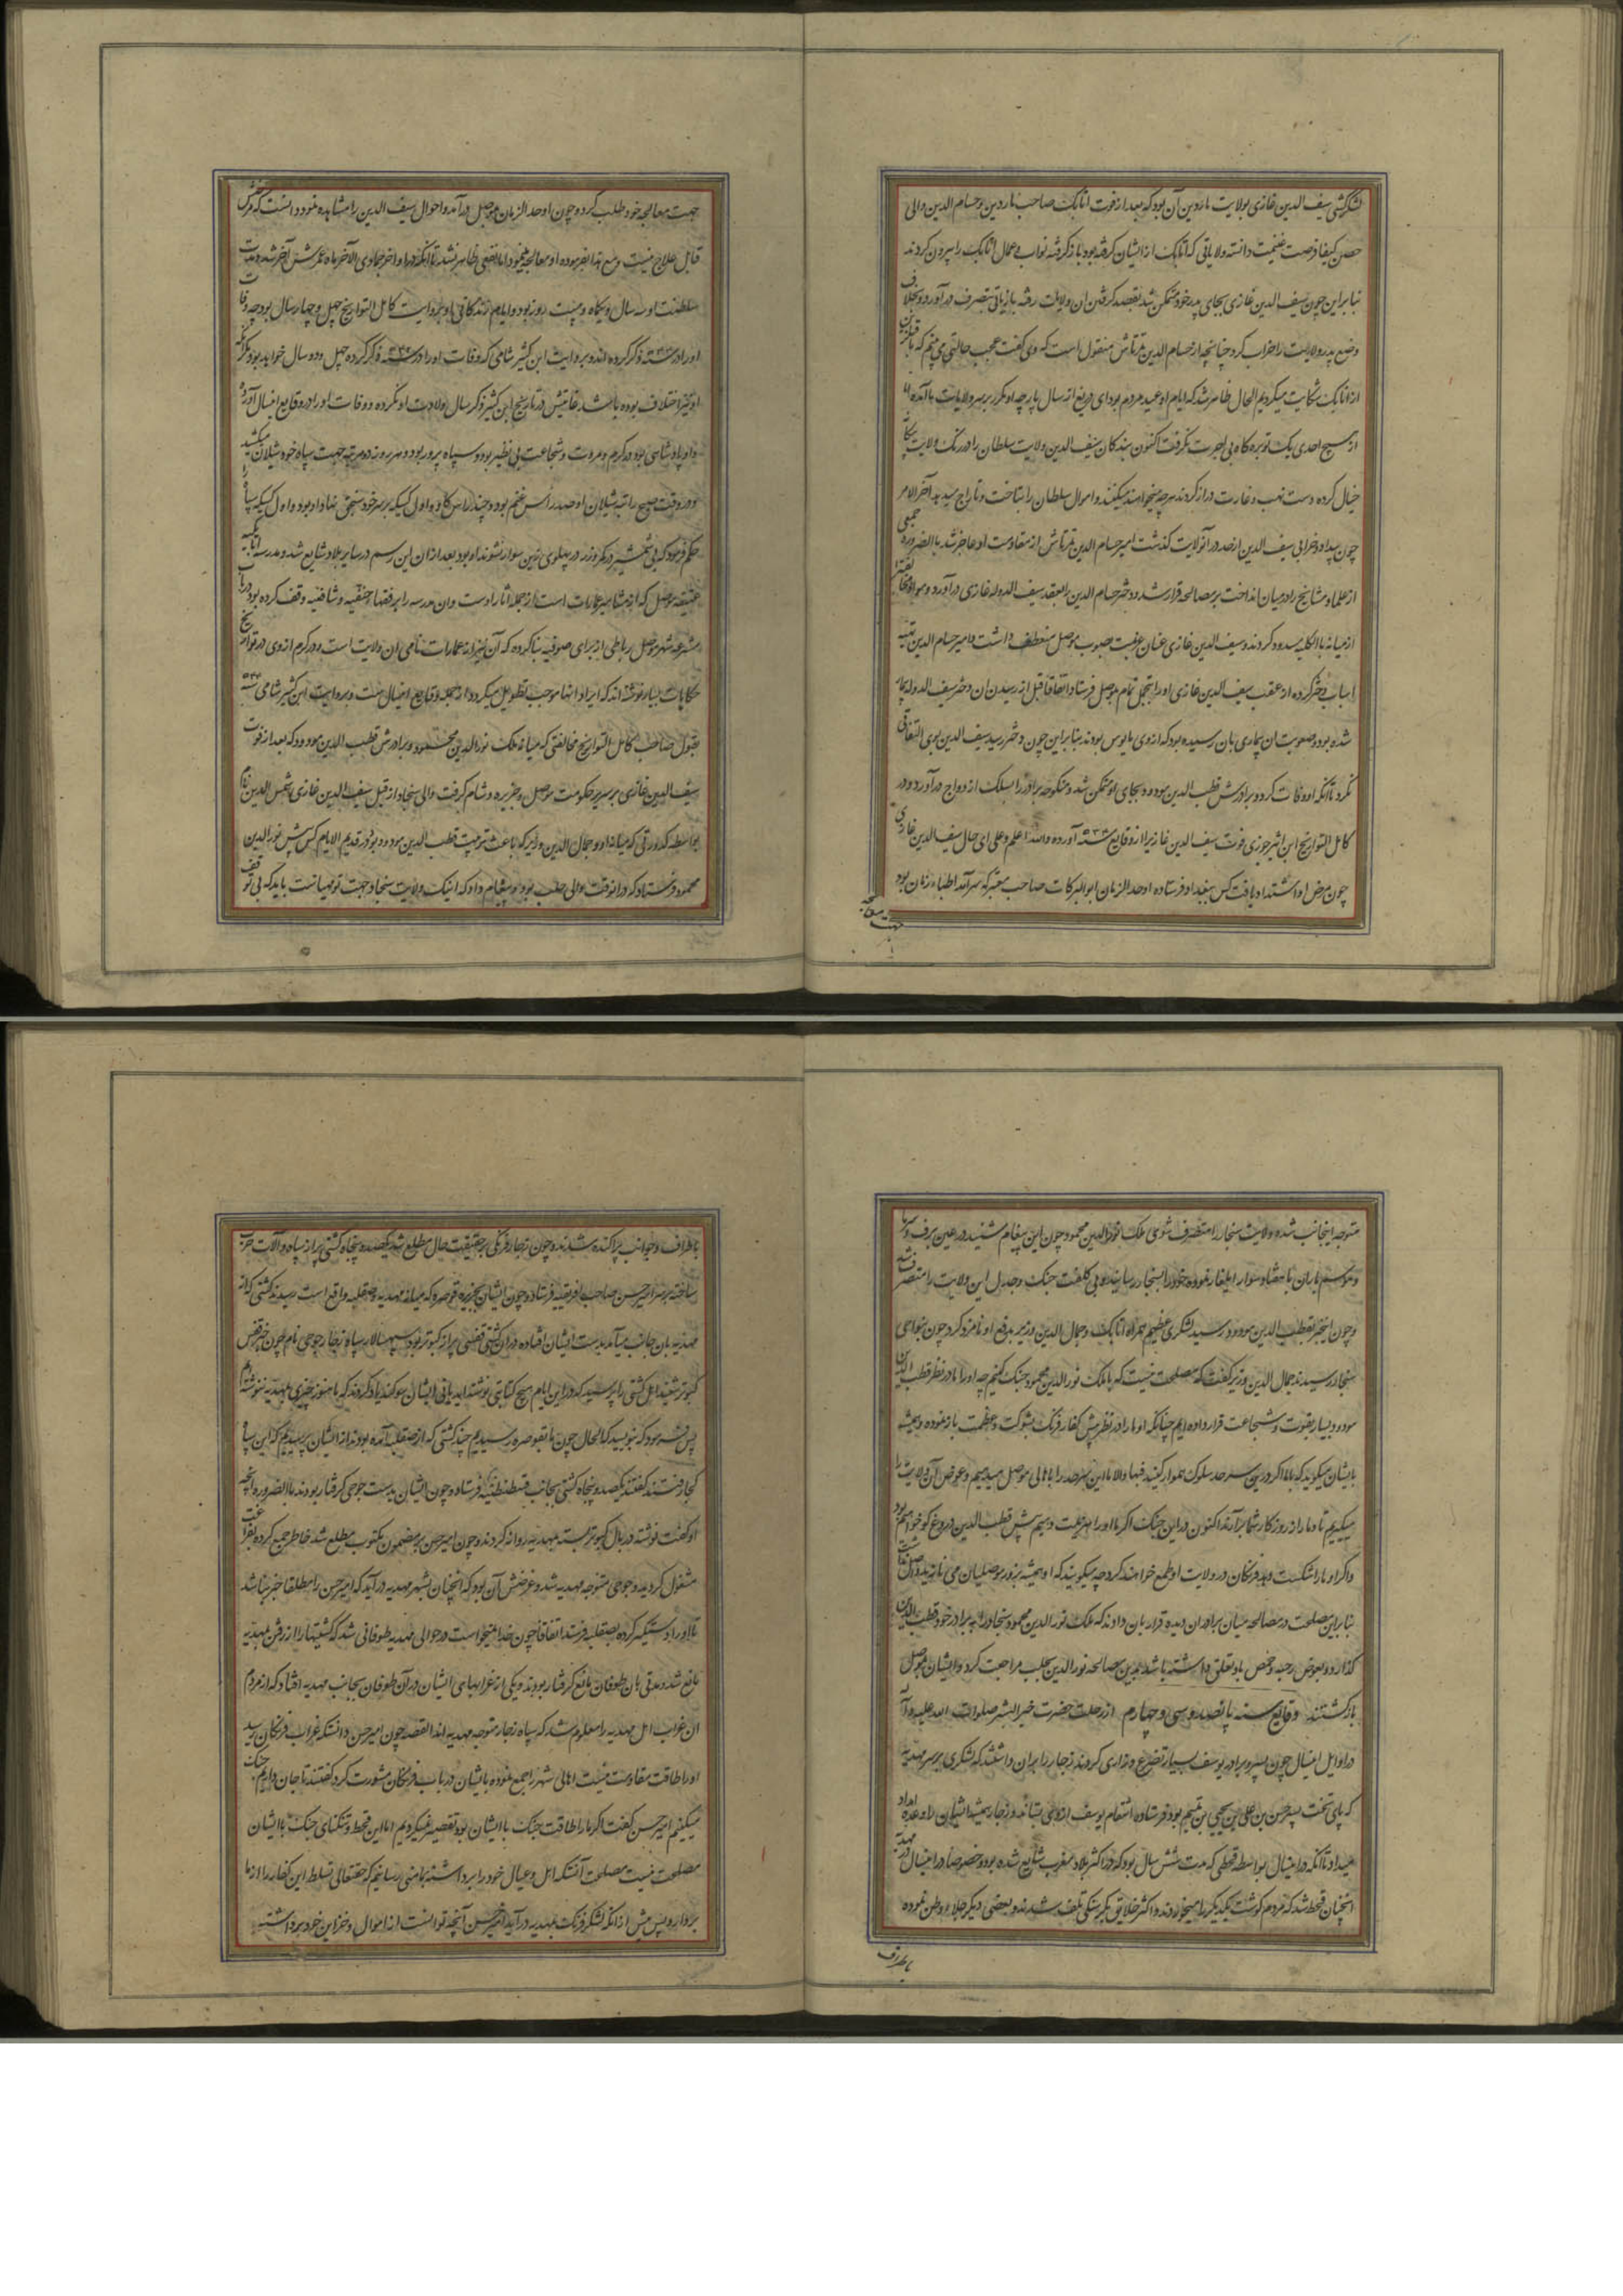 لشکرکشی سیف الدین غازی بولایت ماردین آن بود که بعد از فوت اتابک صاحب ماردین و حسام الدین والی
حصن کیفا فرصت غنیمت دانسته ولایاتی که اتابک از ایشان گرفته بود باز گرفته نواب و عمال اتابک را بیرون کردند
بنابراین چون سیف الدین غازی بجای پدر خود متمکن شد بقصد گرفتن ان ولایت رفته بازیاتی بتصرف درآورد و بخلاف
وضع پدر ولایت را خراب کرد چنانچه از حسام الدین تمرتاش منقول است که وی گفت عجب حالتی می بینم که ما
از اتابک شکایت میکردیم الحال ظاهر شد که ایام او عید مردم بود ای دریغ از سال پارچه او مکرر بر سر ولایات ما آمده
از هیچ احدی یک توبره کاه بی اجرت نگرفت اکنون بندگان سیف الدین ولایت سلطان را در رنگ ولایت
خیال کرده دست نهب و غارت دراز کردند هرچه میخواهند میکنند و اموال سلطان را بتاخت و تاراج میدهد آخر الامر
چون بیداد و خرابی سیف الدین از حد در آنولایت گذشت امیر حسام الدین تمرتاش از مقاومت او عاجز شد بالضروره جمعی
از علما و مشایخ را در میان انداخت بر مصالحه قرار شد و دختر حسام الدین را بعقد سیف الدوله غازی درآورد و
از میانه بالکلیه مسدود کردند و سیف الدین غازی عنان عزیمت بصوب موصل منعطف داشت و امیر حسام الدین تهیه
اسباب دختر کرده از عقب سیف الدین غازی او را بتجمل تمام بموصل فرستاد اتفاقا قبل از رسیدن ان دختر سیف الدوله بیمار
شده بود و صعوبت ان بیماری بان رسیده بود که از وی مایوس بودند بنابراین چون دختر رسید سیف الدین بوی التفاتی
نکرد تا انکه او وفات کرد و برادرش قطب الدین مودود بجای او متمکن شد و منکوحه برادر را بسلک ازدواج درآورد و در
کامل التواریخ ابن اثیر جزری فوت سیف الدین غازیرا از وقایع سنه ۵۳۴ آورده والله اعلم و علی ای حال سیف الدین غازی
چون مرض او اشتداد یافت کس ببغداد فرستاده اوحد الزمان ابو البرکات صاحب معتبر که سرآمد اطباء زمان بود
جهت معالجه
جهت معالجه خود طلب کرده و چون اوحد الزمان بموصل درآمد و احوال سیف الدین را مشاهده نمود دانست که مرض
قابل علاج نیست و مع هذا بفرموده او معالجه مینمود اما نفعی ظاهر نشد تا انکه در اواخر جمادی الآخر ماه عمرش آخر شد و مدت
سلطنت او سه سال و یکماه و بیست روز بود و ایام زندگانی او بروایت کامل التواریخ چهل و چهار سال بود چه وفات
او را در سنه ذکر کرده اند و بروایت ابن کثیر شامی که وفات او را در سنه ذکر کرده چهل و دو سال خواهد بود مگر انکه
او نیز اختلاف بوده باشد غایتش در تاریخ ابن کثیر ذکر سال ولادت او نکرده و وفات او را در وقایع اینسال آورده
و او پادشاهی بود در کرم و مروت و شجاعت بی نظیر بود و سپاه پرور بود و هر روزه دو مرتبه جهت سپاه خود شیلان میکشید
و در وقت صبح راتبه شیلان او صد راس غنم بود و چند راس گاو و اول کسیکه بر سر خود سنجق نهاد او بود و اول کسیکه سپاه را
حکم فرمود که بی شمشیر در کمر و زر در پهلوی زین سوار نشوند او بود بعد از ان این رسم در سایر بلاد شایع شد و مدرسه اتابکیه
عتیقه موصل که از مشاهیر عمارات است از جمله آثار اوست و ان مدرسه را بر فقهاء حنفیه و شافعیه وقف کرده بود و در باب
مشرعه شهر موصل رباطی از برای صوفیه بنا کرده که آن نیز از عمارات نامی ان ولایت است و در کرم از وی در تواریخ
حکایات بسیار نوشته اند که ایراد انها موجب تطویل میگردد از جمله وقایع اینسال است و بروایت ابن کثیر شامی سنه
بقول صاحب کامل التواریخ مخالفتی که میانه ملک نورالدین محمود و برادرش قطب الدین مودود که بعد از فوت
سیف الدین غازی بر سریر حکومت موصل و جزیره و شام گرفت والی سنجار از قبل سیف الدین غازی شمس الدین نام
بواسطه کدورتی که میانه او و جمال الدین وزیر که باعث تربیت قطب الدین مودود بود در قدیم الایام کس پیش نورالدین
محمود فرستاد که در انوقت والی حلب بود و پیغام داد که اینک ولایت سنجار جهت تو مهیاست باید که بی توقف
متوجه اینجانب شده ولایت سنجار را متصرف شوی ملک نورالدین محمود چون این پیغام شنید در عین برف و سرما
و موسم باران با هفتاد سوار ایلغار نموده خود را بسنجار رسانیده بی کلفت جنگ و جدل این ولایت را متصرف شد
و چون اینخبر بقطب الدین مودود رسید لشکری عظیم همراه اتابک و جمال الدین وزیر بدفع او نامزد کرد چون بنواحی
سنجار رسیدند جمال الدین وزیر گفت که مصلحت نیست که با ملک نورالدین محمود جنگ کنیم چه او را ما در نظر قطب الدین
مودود بسیار بقوت و شجاعت قرار داده ایم چنانکه او ما را در نظر پیش کفار فرنگ بشوکت و عظمت باز نموده و همیشه
بایشان میگوید که با ما اگر در این سرحد سلوک هموار کنید فبها والا ما این سرحد را باهالی موصل میدهیم و عوض آن ولایت را
میگیریم تا دمار از روزگار شما برآرند اکنون در این جنگ اگر ما او را هزیمت دهیم پیش قطب الدین دروغ گو خواهیم بود
و اگر او ما را شکست دهد فرنگان در ولایت او طمع خواهند کرد چه میگویند که او همیشه بزور موصلیان می نازید
بنابراین مصلحت در مصالحه میان برادران دیده قرار بان دادند که ملک نورالدین محمود سنجار را به برادر خود قطب الدین
گذارد و بعوض رحبه و حمص باو تعلق داشته باشد بدین مصالحه نورالدین بحلب مراجعت کرد و ایشان بموصل
بازگشتند وقایع سنه پانصد و سی و چهارم از رحلت حضرت خیر البشر صلوات الله علیه و آله
در اوایل اینسال چون پسر و برادر یوسف بسیار تضرع و زاری کردند زجار را بران داشتند که لشکری بر سر مهدیه
که پای تخت پسر حسن بن علی بن یحیی بن تمیم بود فرستاده انتقام یوسف از وی بستاند و زجار همیشه ایشان را وعده امداد
میداد تا انکه در اینسال بواسطه قحطی که مدت شش سال بود که در اکثر بلاد مغرب شایع شده بود خصوصا در اینسال در مهدیه
انچنان قحط شد که مردم گوشت یکدیگر را میخوردند و اکثر خلایق بگرسنگی تلف شدند و بعضی دیگر جلاء وطن نموده
باطراف
باطراف و جوانب پراکنده شدند و چون زجار فرنگی بر حقیقت حال مطلع شد یکصد و پنجاه کشتی پر از سپاه و آلات حرب
ساخته بر سر امیر حسن صاحب افریقیه فرستاد و چون ایشان بجزیره قوصره که میانه مهدیه و صقلیه واقع است رسیدند کشتی که از
مهدیه بان جانب میآمد بدست ایشان افتاده در ان کشتی قفسی پر از کبوتر بود سپهسالار سپاه زجار جرجی نام چون خبر قفس
کبوتر شنید اهل کشتی را پرسید که در این ایام هیچ کتابتی نوشته اید یانی ایشان سوگند یاد کردند که ما هنوز چیزی بمهدیه ننوشته ایم
پس فرمود که بنویسید که الحال چون ما بقوصره رسیدیم چند کشتی که از صقلیه آمده بودند از ایشان پرسیدیم که این سپاه
کجا رفتند گفتند یکصد و پنجاه کشتی بجانب قسطنطنیه فرستاده و چون ایشان بدست جرجی گرفتار بودند بالضروره انچه
او گفت نوشته در بال کبوتر بسته بمهدیه روانه کردند و چون امیر حسن بر مضمون مکتوب مطلع شد خاطر جمع کرده بفراغت
مشغول گردید و جرجی متوجه مهدیه شد و غرضش آن بود که انچنان بشهر مهدیه درآید که امیر حسن را مطلقا خبر نباشد
تا او را دستگیر کرده بصقلیه فرستد اتفاقا چون خدا نمیخواست در حوالی مهدیه طوفانی شد که کشتیها را از رفتن بمهدیه
مانع شد و مدتی بان طوفان مانع گرفتار بودند و یکی از غرابهای ایشان در آن طوفان بجانب مهدیه افتاد که از مردم
ان غراب اهل مهدیه را معلوم شد که سپاه زجار متوجه مهدیه اند القصه چون امیر حسن دانست که غراب فرنگان رسید
او را طاقت مقاومت نیست اهالی شهر را جمع نموده بایشان در باب فرنگان مشورت کرد گفتند تا جان داریم جنگ
میکنیم امیر حسن گفت اگر ما را طاقت جنگ با ایشان بود تقصیر نمیکردیم اما این قحط و تنگنای جنگ با ایشان
مصلحت نیست مصلحت آنستکه اهل و عیال خود را برداشته بمامنی رسانیم که حقتعالی تسلط این کفار را از ما
بردارد پس پیش از انکه لشکر فرنگ بمهدیه درآید امیر حسن آنچه توانست از اموال و خزاین خود برداشته